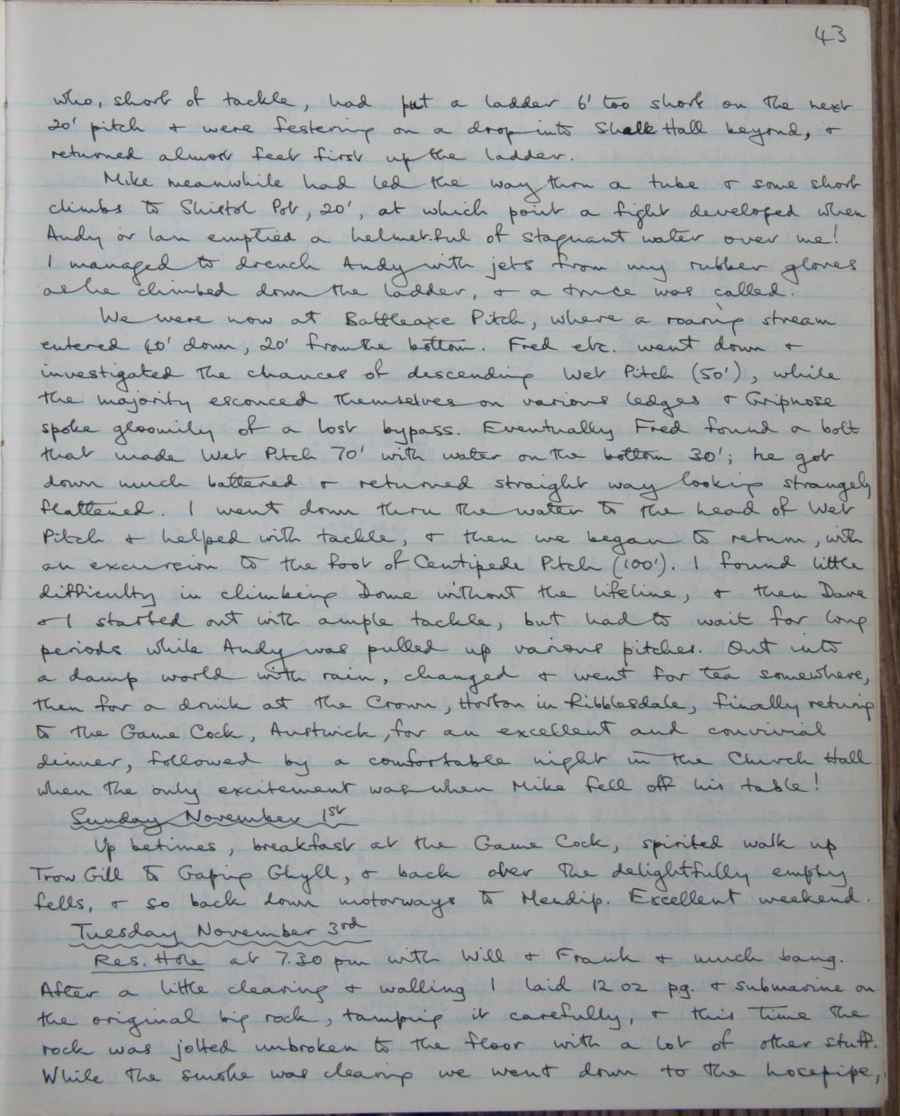 43
who, short of tackle, had put a ladder 6' too short on the next
20' pitch & were festering on a drop into Shale Hall beyond, &
returned almost feet first up the ladder.
Mike meanwhile had led the way thru a tube & some short
climbs to Shistol Pot, 20', at which point a fight developed when
Andy or Ian emptied a helmet-ful of stagnant water over me!
I managed to drench Andy with jets from my rubber gloves
as he climbed down the ladder, & a truce was called.
We were now at Battleaxe Pitch, where a roaring stream
entered 60' down, 20' from the bottom. Fred etc. went down &
investigated the chances of descending Wet Pitch (50'), while
the majority esconced themselves on various ledges & Gripnose
spoke gloomily of a lost bypass. Eventually Fred found a bolt
that made Wet Pitch 70' with water on the bottom 30'; he got
down much battered & returned straight way looking strangely
flattened. I went down thru the water to the head of Wet
Pitch & helped with tackle, & then we began to return, with
an excursion to the foot of Centipede Pitch (100'). I found little
difficulty in climbing Dome without the lifeline, & then Dave
& I started out with ample tackle, but had to wait for long
periods while Andy was pulled up various pitches. Out into
a damp world with rain, changed & went for tea somewhere,
then for a drink at the Crown, Horton in Ribblesdale, finally returning
to the Game Cock, Austwick, for an excellent and convivial
dinner, followed by a comfortable night in the Church Hall
when the only excitement was when Mike fell off his table!
Sunday November 1st
Up betimes, breakfast at the Game Cock, spirited walk up
Trow Gill to Gaping Ghyll, & back over the delightfully empty
fells, & so back down motorways to Mendip. Excellent weekend.
Tuesday November 3rd
Res. Hole at 7.30 pm with Will & Frank & much bang.
After a little clearing & walling I laid 12 oz pg. & submarine on
the original big rock, tamping it carefully, & this time the
rock was jolted unbroken to the floor with a lot of other stuff.
While the smoke was clearing we went down to the hosepipe,